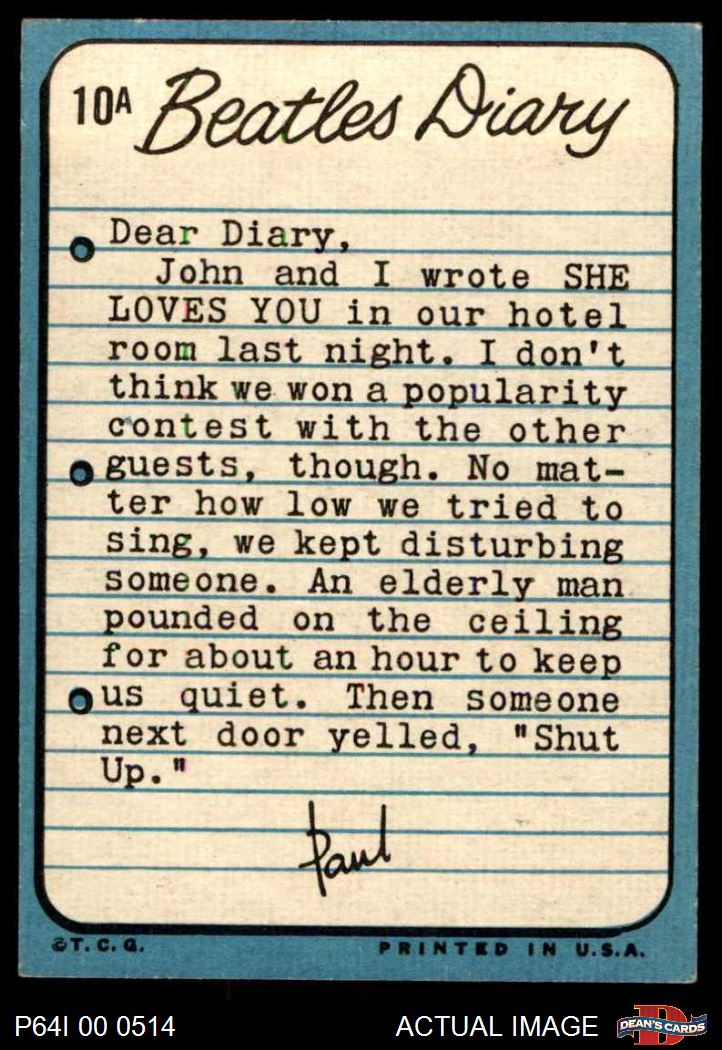 10A Beatles Diary
Dear Diary,
John and I wrote SHE
LOVES YOU in our hotel
room last night. I don't
think we won a popularity
contest with the other
guests, though. No mat-
ter how low we tried to
sing, we kept disturbing
someone. An elderly man
pounded on the ceiling
for about an hour to keep
us quiet. Then someone
next door yelled, "Shut
Up."
Paul
©T.C.G. PRINTED IN U.S.A.
P64I 00 0514 ACTUAL IMAGE D DEAN'S CARDS